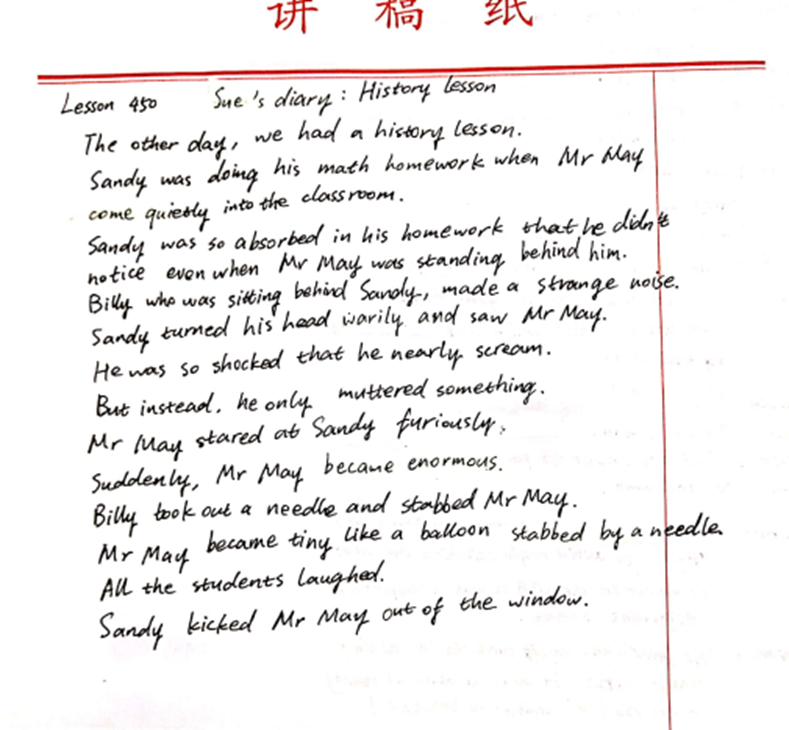 讲 稿 纸
Lesson 450 Sue's diary : History lesson
The other day, we had a history lesson.
Sandy was doing his math homework when Mr May
come quietly into the classroom.
Sandy was so absorbed in his homework that he didn't
notice even when Mr May was standing behind him.
Billy who was sitting behind Sandy, made a strange noise.
Sandy turned his head warily and saw Mr May.
He was so shocked that he nearly scream.
But instead, he only muttered something.
Mr May stared at Sandy furiously.
Suddenly, Mr May became enormous.
Billy took out a needle and stabbed Mr May.
Mr May became tiny like a balloon stabbed by a needle.
All the students laughed.
Sandy kicked Mr May out of the window.